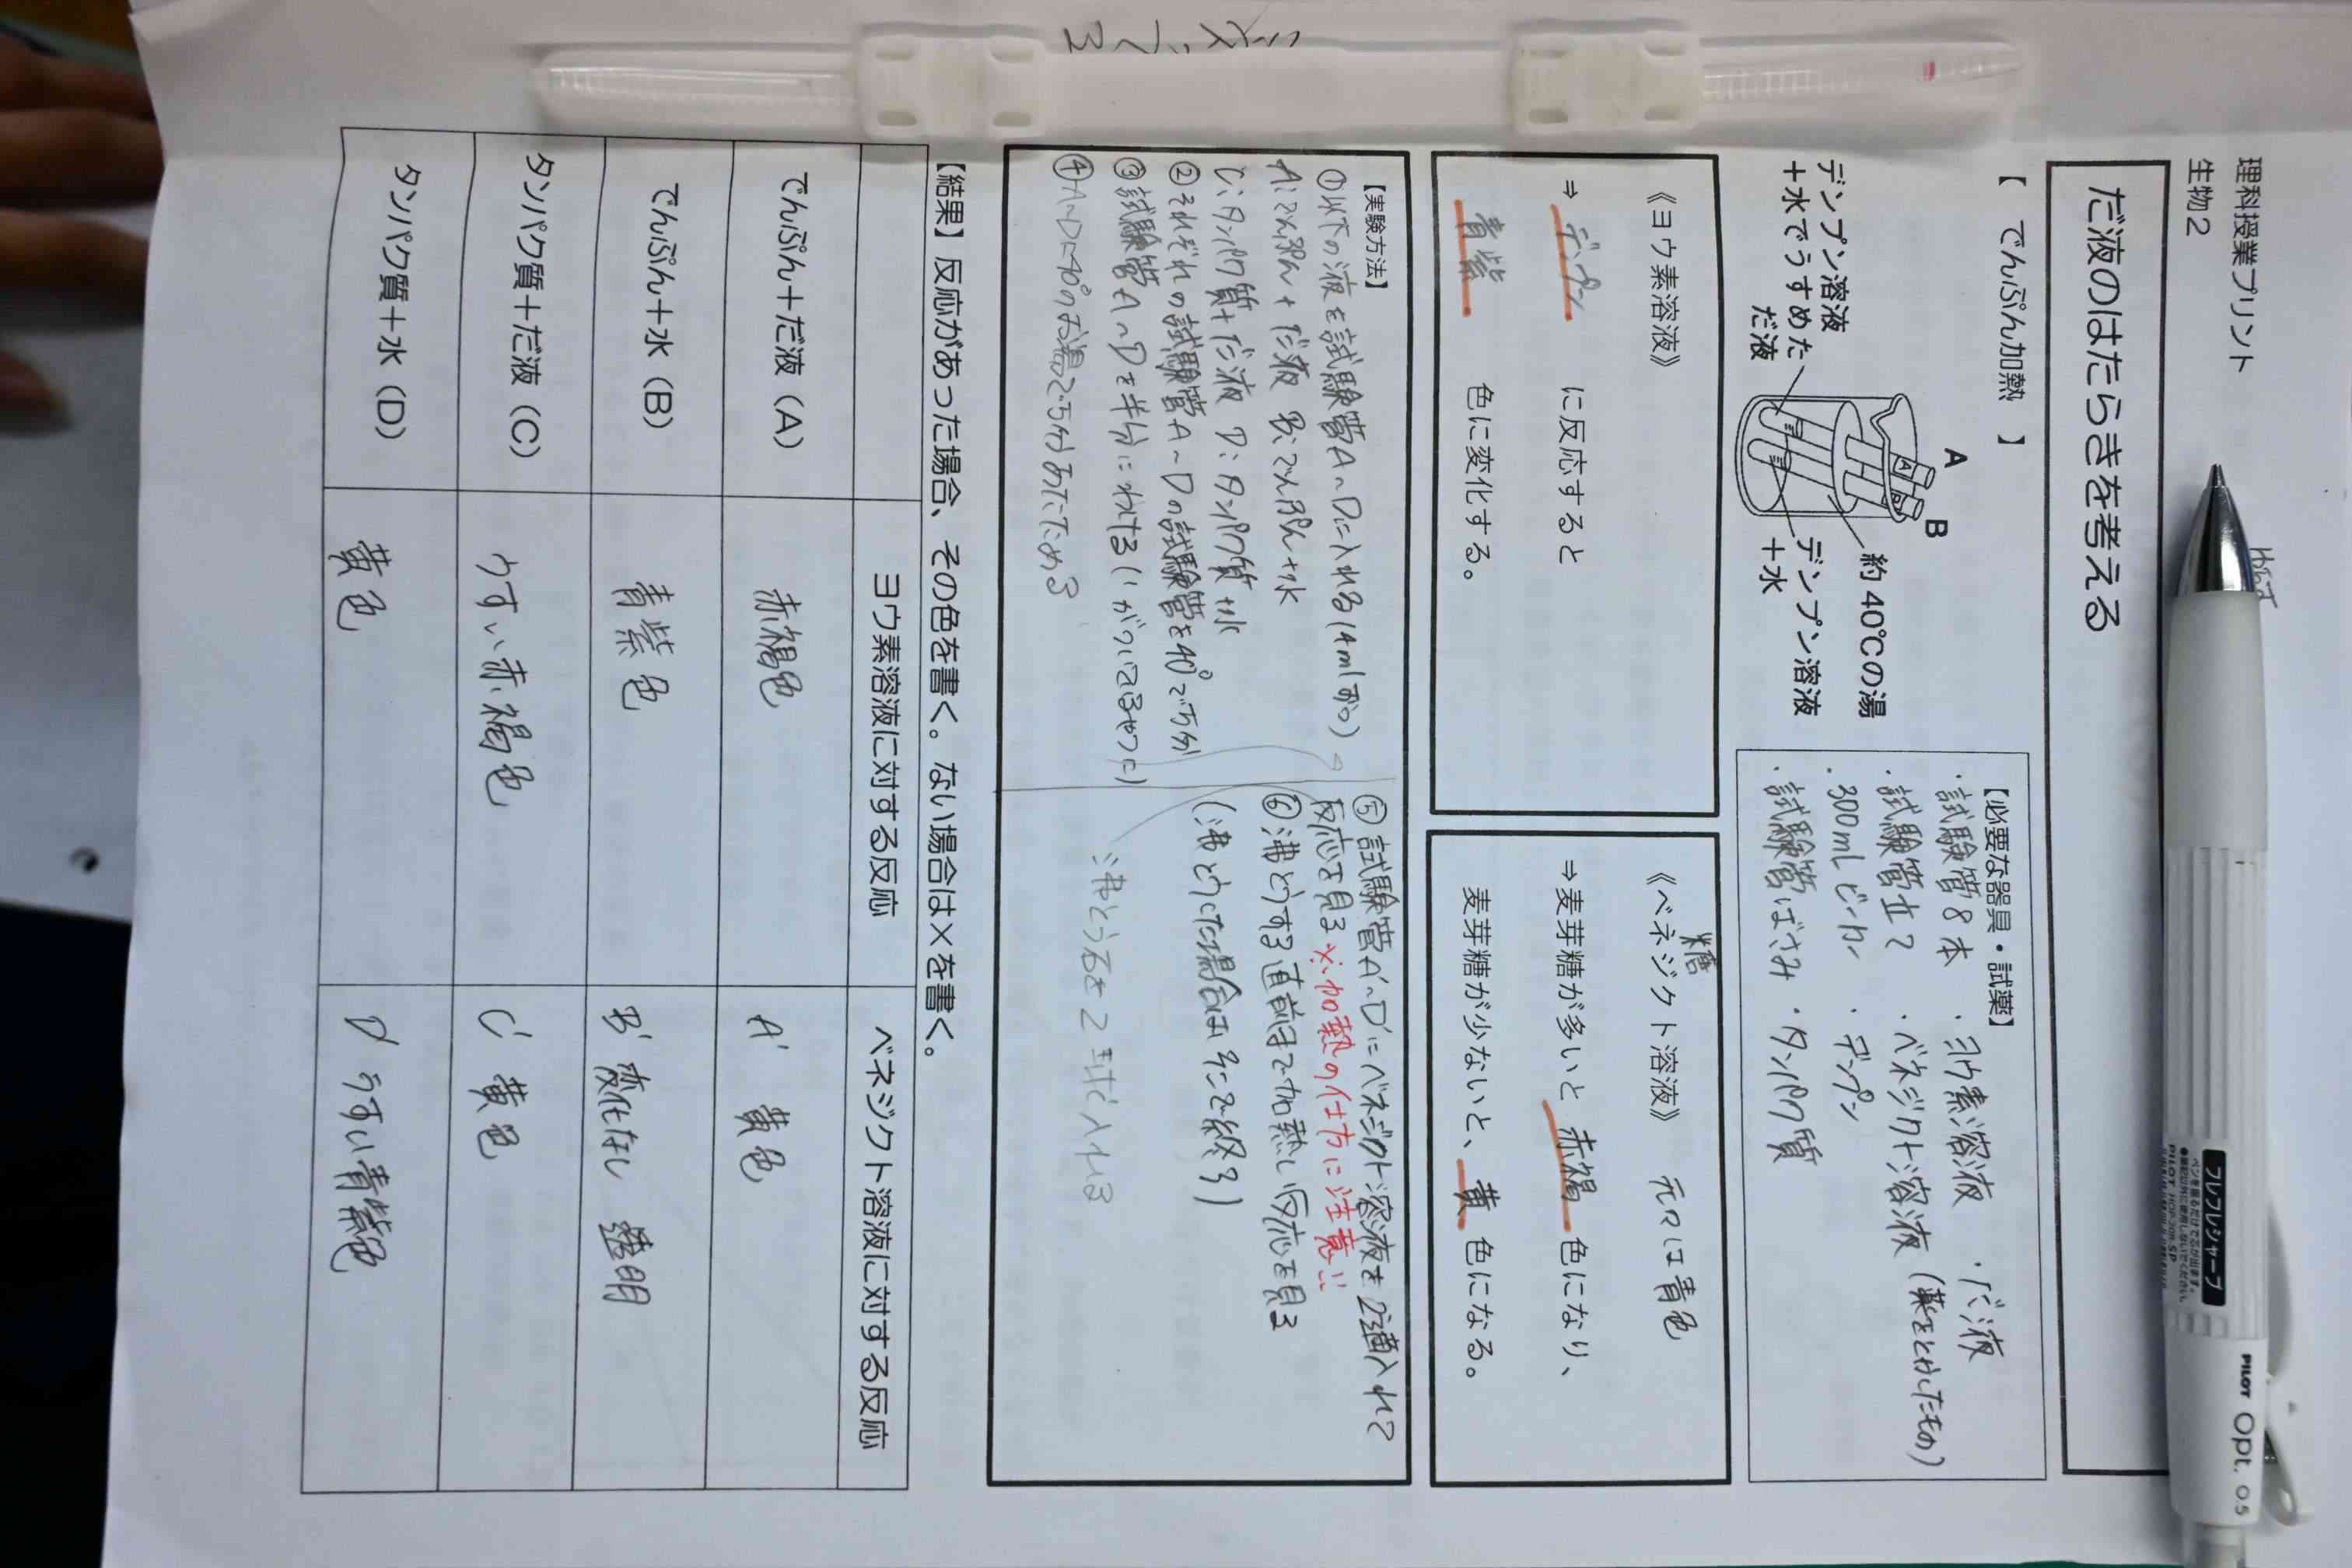 理科授業プリント
生物2
だ液のはたらきを考える
【 でんぷん加熱 】
A
B
デンプン溶液
＋水でうすめた
だ液
約40℃の湯
デンプン溶液
＋水
【必要な器具・試薬】
・試験管8本 ・ヨウ素溶液 ・だ液
・試験管立て ・ベネジクト溶液（薬をとかしたもの）
・300mLビーカー ・デンプン
・試験管ばさみ ・タンパク質
《ヨウ素溶液》
⇒ デンプン に反応すると
青紫 色に変化する。
糖
《ベネジクト溶液》 元々は青色
⇒麦芽糖が多いと 赤褐 色になり、
麦芽糖が少ないと、 黄 色になる。
【実験方法】
①以下の液を試験管A～Dに入れる（4mlずつ）
A：でんぷん＋だ液 B：でんぷん＋水
C：タンパク質＋だ液 D：タンパク質＋水
②それぞれの試験管A～Dの試験管を40°で5分
③試験管A～Dを半分にわける（'がついてるやつに）
④A～Dに40°のお湯で5分あたためる
⑤試験管A'～D'にベネジクト溶液を2滴入れて
反応を見る ※加熱の仕方に注意!!
⑥沸とうする直前まで加熱し反応を見る
（沸とうした場合はそこで終了）
沸とう石を2コ入れる
【結果】反応があった場合、その色を書く。ない場合は×を書く。
ヨウ素溶液に対する反応 ベネジクト溶液に対する反応
でんぷん＋だ液（A） 赤褐色 A' 黄色
でんぷん＋水（B） 青紫色 B' 変化なし 透明
タンパク質＋だ液（C） うすい赤褐色 C' 黄色
タンパク質＋水（D） 黄色 D' うすい青紫色
フレフレシャープ
PILOT Opt. 0.5